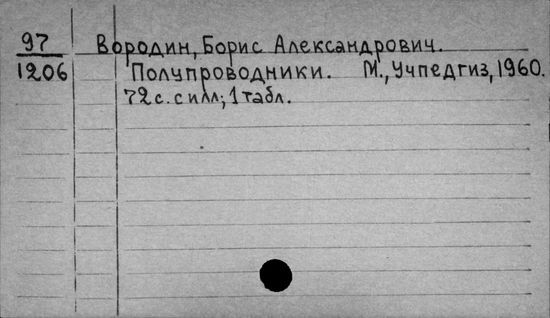 97 Вородин, Борис Александрович.
1206 Полупроводники. М., Учпедгиз, 1960.
72 с. с илл; 1 табл.